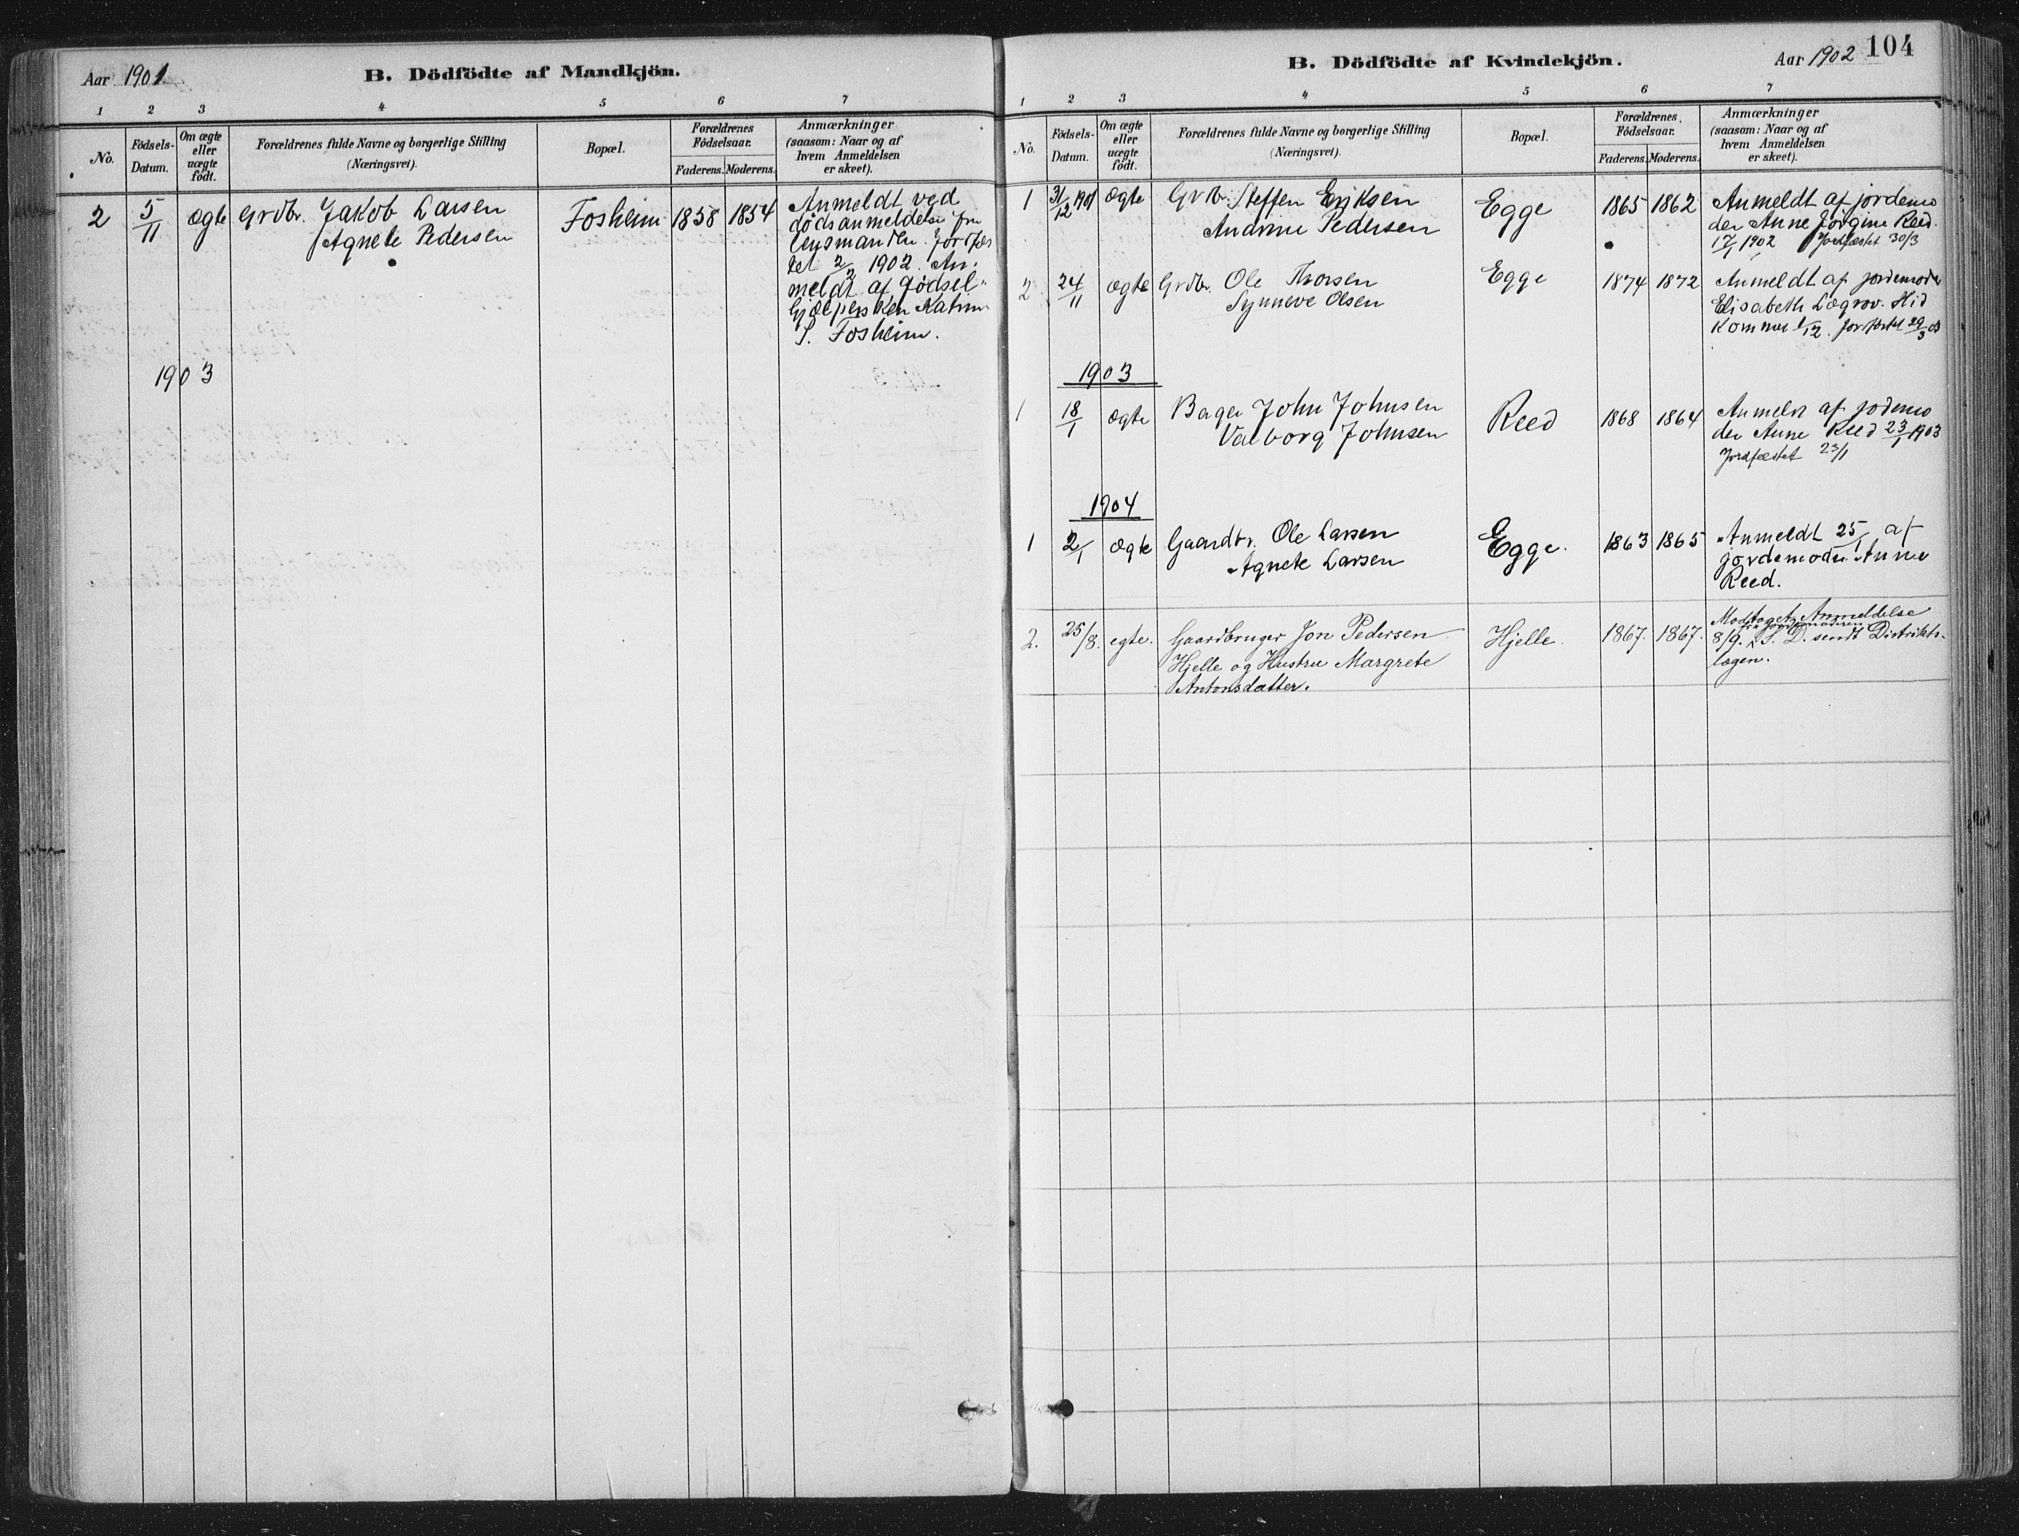 Aar 1901.
B. Dödfödte af Mandkjön.
1 2 3 4 5 6 7
No.
Födsels-
Datum.
Om ægte
eller
uægte
födt.
Forældrenes fulde Navne og borgerlige Stilling
(Næringsvei).
Bopæl.
Forældrenes
Födselsaar.
Faderens. Moderens.
Anmærkninger
(saasom: Naar og af
hvem Anmeldelsen
er skeet).
2 5/11 ægte Grdbr. Jakob Larsen Fosheim 1858 1854 Anmeldt ved
Agnete Pedersen
dødsanmeldelse fra
lensmanden. Jordfæs
tet 2/2 1902. An.
meldt af fødsel-
hjælpersken Katrine
S. Fosheim.
1903
B. Dödfödte af Kvindekjön.
Aar 1902 104
1 2 3 4 5 6 7
No.
Födsels-
Datum.
Om ægte
eller
uægte
födt.
Forældrenes fulde Navne og borgerlige Stilling
(Næringsvei).
Bopæl.
Forældrenes
Födselsaar.
Faderens. Moderens.
Anmærkninger
(saasom: Naar og af
hvem Anmeldelsen
er skeet).
1 31/12 1901 ægte Grdbr. Steffen Eriksen Egge 1865 1862 Anmeldt af jordemo
Andrine Pedersen
der Anne Jørgine Reed.
17/1 1902 Jordfæstet 30/3
2 24/11 ægte Grdbr. Ole Thorsen Egge 1874 1872 Anmeldt af jordemoder
Synneve Olsen
Elisabeth Løgrov. Hid
kommet 1/12. Jordfæstet 29/3 03
1903
1 18/1 ægte Bager John Johnsen Reed 1868 1864 Anmeldt af jordemo
Valborg Johnsen
der Anne Reed 23/1 1903
Jordfæstet 23/1
1904
1 2/1 Ægte Gaardbr. Ole Larsen Egge. 1863 1865 Anmeldt 25/1 af
Agnete Larsen
jordemoder Anne
Reed.
2. 25/8. egte. Gaardbruger Jon Pedersen Hjelle. 1867. 1867. Modtaget Anmeldelse
fra Jordemoderen
Hjelle og Hustru Margrete
8/9. S. D. sendt Distrikts-
Antonsdatter.
lægen.